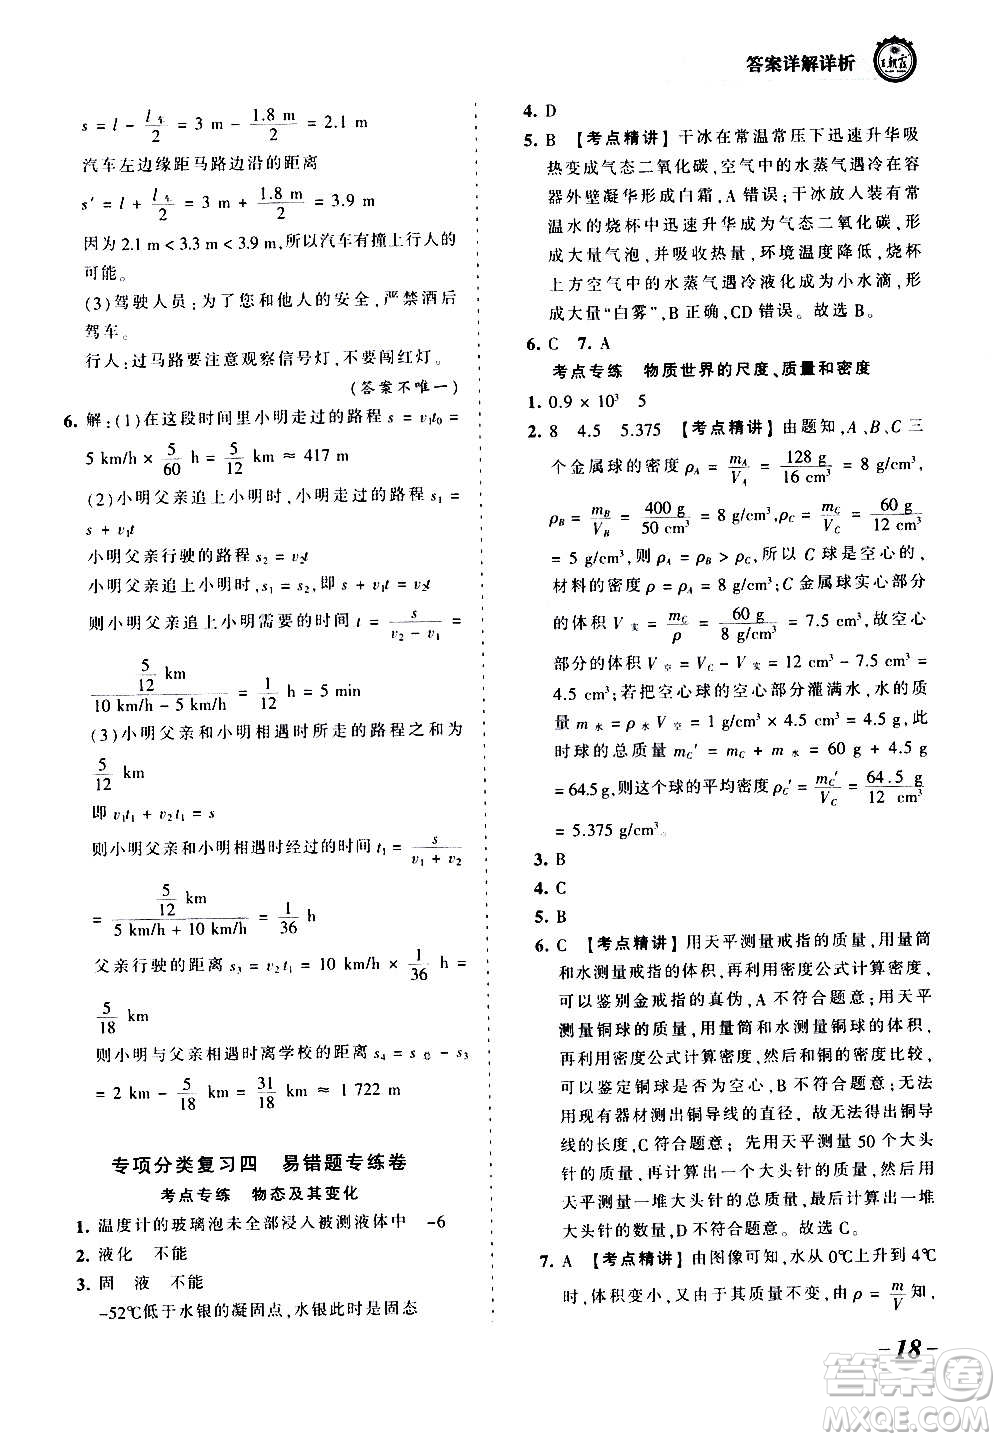 答案详解详析
王朝霞
s = l - l车/2 = 3 m - 1.8 m/2 = 2.1 m
汽车左边缘距马路边沿的距离
s′ = l + l车/2 = 3 m + 1.8 m/2 = 3.9 m
因为 2.1 m < 3.3 m < 3.9 m,所以汽车有撞上行人的
可能。
(3)驾驶人员:为了您和他人的安全,严禁酒后
驾车。
行人:过马路要注意观察信号灯,不要闯红灯。
(答案不唯一)
6. 解:(1)在这段时间里小明走过的路程 s = v₁t₀ =
5 km/h × 5/60 h = 5/12 km ≈ 417 m
(2)小明父亲追上小明时,小明走过的路程 s₁ =
s + v₁t
小明父亲行驶的路程 s₂ = v₂t
小明父亲追上小明时,s₁ = s₂,即 s + v₁t = v₂t
则小明父亲追上小明需要的时间 t = s/(v₂ - v₁) =
(5/12 km)/(10 km/h - 5 km/h) = 1/12 h = 5 min
(3)小明父亲和小明相遇时所走的路程之和为
5/12 km
即 v₁t₁ + v₂t₁ = s
则小明父亲和小明相遇时经过的时间 t₁ = s/(v₁ + v₂)
= (5/12 km)/(5 km/h + 10 km/h) = 1/36 h
父亲行驶的距离 s₃ = v₂t₁ = 10 km/h × 1/36 h =
5/18 km
则小明与父亲相遇时离学校的距离 s₄ = s总 - s₃
= 2 km - 5/18 km = 31/18 km ≈ 1 722 m
专项分类复习四 易错题专练卷
考点专练 物态及其变化
1. 温度计的玻璃泡未全部浸入被测液体中 -6
2. 液化 不能
3. 固 液 不能
-52℃低于水银的凝固点,水银此时是固态
4. D
5. B 【考点精讲】干冰在常温常压下迅速升华吸
热变成气态二氧化碳,空气中的水蒸气遇冷在容
器外壁凝华形成白霜,A 错误;干冰放入装有常
温水的烧杯中迅速升华成为气态二氧化碳,形
成大量气泡,并吸收热量,环境温度降低,烧杯
上方空气中的水蒸气遇冷液化成为小水滴,形
成大量“白雾”,B 正确,CD 错误。故选 B。
6. C 7. A
考点专练 物质世界的尺度、质量和密度
1. 0.9 × 10³ 5
2. 8 4.5 5.375 【考点精讲】由题知,A、B、C 三
个金属球的密度 ρA = mA/VA = 128 g/16 cm³ = 8 g/cm³,
ρB = mB/VB = 400 g/50 cm³ = 8 g/cm³,ρC = mC/VC = 60 g/12 cm³
= 5 g/cm³,则 ρA = ρB > ρC,所以 C 球是空心的,
材料的密度 ρ = ρA = 8 g/cm³;C 金属球实心部分
的体积 V实 = mC/ρ = 60 g/8 g/cm³ = 7.5 cm³,空心
部分的体积 V空 = VC - V实 = 12 cm³ - 7.5 cm³ =
4.5 cm³;若把空心球的空心部分灌满水,水的质
量 m水 = ρ水V空 = 1 g/cm³ × 4.5 cm³ = 4.5 g,此
时球的总质量 mC′ = mC + m水 = 60 g + 4.5 g
= 64.5 g,则这个球的平均密度 ρC′ = mC′/VC = 64.5 g/12 cm³
= 5.375 g/cm³。
3. B
4. C
5. B
6. C 【考点精讲】用天平测量戒指的质量,用量筒
和水测量戒指的体积,再利用密度公式计算密度,
可以鉴别金戒指的真伪,A 不符合题意;用天平
测量铜球的质量,用量筒和水测量铜球的体积,
再利用密度公式计算密度,然后和铜的密度比较,
可以鉴定铜球是否为空心,B 不符合题意;利
用现有器材测出铜导线的直径,故无法得出铜导
线的长度,C 符合题意;先用天平测量 50 个大头
针的质量,从而得到一个大头针的质量,再利用
天平测量一堆大头针的总质量,最后得出一堆
大头针的数量,D 不符合题意。故选 C。
7. A 【考点精讲】由图像可知,水从 0℃上升到 4℃
时,体积变小,又由于其质量不变,由 ρ = m/V 可知,
- 18 -
答案圈
MXQE.COM